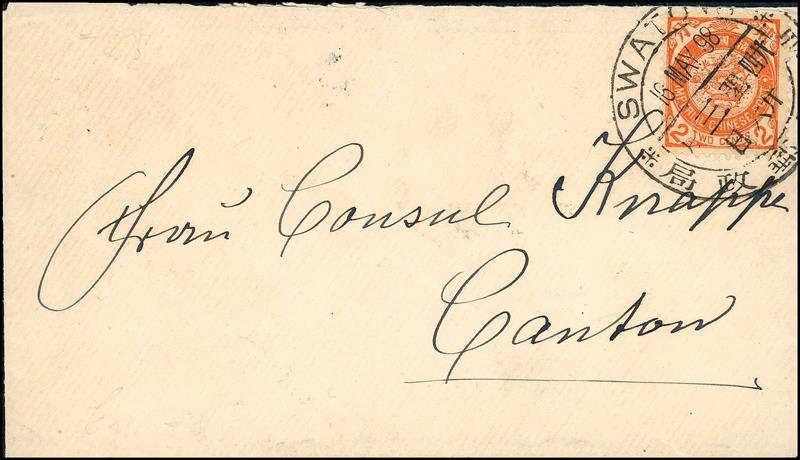 SWATOW
16 MAY 98
IMPERIAL CHINESE POST
2 2
TWO CENTS
政局
Frau Consul Knappe
Canton